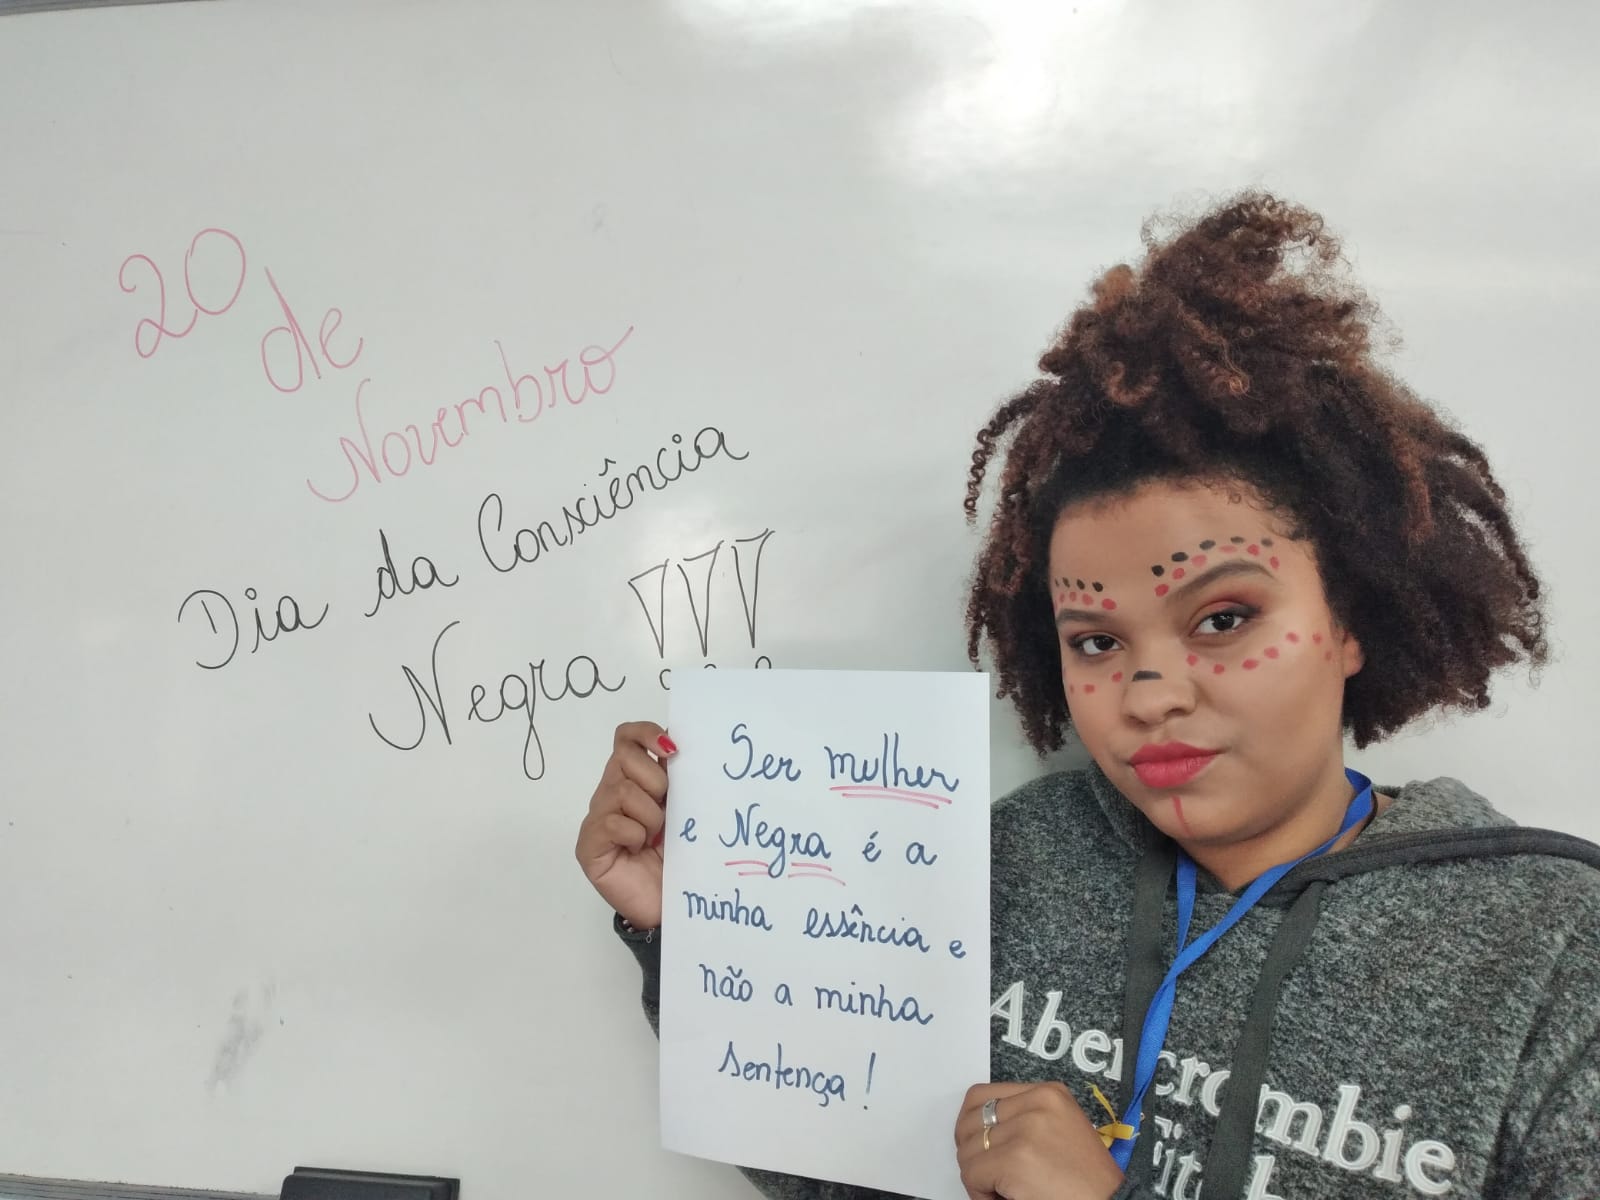 20
de
Novembro
Dia da Consciência
Negra !!!
Ser mulher
e Negra é a
minha essência e
não a minha
sentença!
Abercrombie
Fitch